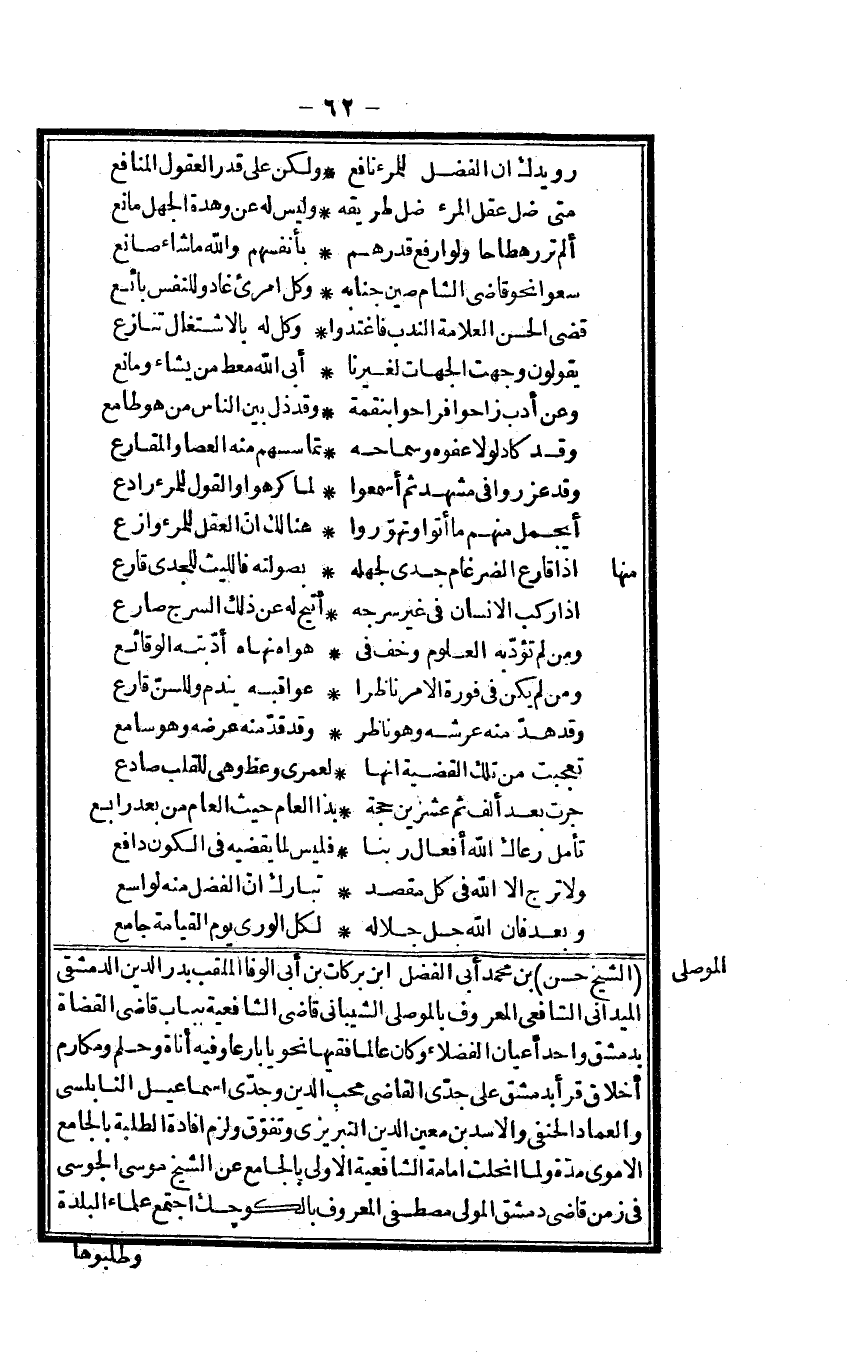 - ٦٢ -
رويدك ان الفضل للمرء نافع * ولكن على قدر العقول المنافع
متى ضل عقل المرء ضل طريقه * وليس له عن وهدة الجهل مانع
ألم تر رهطا حاولوا رفع قدرهم * بأنفسهم والله ما شاء صانع
سعوا نحو قاضى الشام صين جنابه * وكل امرئ غاد وللنفس بائع
قضى الحسن العلامة الندب فاغتدوا * وكل له بالاشتغال تنازع
يقولون وجهت الجهات لغيرنا * أبى الله معط من يشاء ومانع
وعن أدب زاحوا فراحوا بنقمة * وقد ذل بين الناس من هو طامع
وقد كاد لولا عفوه وسماحه * تماسسهم منه العصا والمقارع
وقد عزروا فى مشهد ثم أسمعوا * لما كرهوا والقول للمرء رادع
أيجمل منهم ما أتوا وتهوّروا * هنالك انّ العقل للمرء وازع
منها اذا قارع الضرغام جدى لجهله * بصولته فالليث للجدى قارع
اذا ركب الانسان فى غير سرجه * أتيح له عن ذلك السرج صارع
ومن لم تؤدّبه العلوم وخف فى * هواه نهاه أدّبته الوقائع
ومن لم يكن فى فورة الامر ناظرا * عواقبه يندم وللسنّ قارع
وقد هدّ منه عرشه وهو ناظر * وقد قدّ منه عرضه وهو سامع
تعجبت من تلك القضية انها * لعمرى وعظ وهى للقلب صادع
جرت بعد ألف ثم عشرين حجة * بذا العام حيث العام من بعد رابع
تأمل رعاك الله أفعال ربنا * فليس لما يقضيه فى الكون دافع
ولا ترج الا الله فى كل مقصد * تبارك انّ الفضل منه لواسع
وبعد فان الله جل جلاله * لكل الورى يوم القيامة جامع
الموصلى
(الشيخ حسن) بن محمد أبى الفضل ابن بركات بن أبى الوفا الملقب بدر الدين الدمشقى
الميدانى الشافعى المعروف بالموصلى الشيبانى قاضى الشافعية بباب قاضى القضاة
بدمشق واحد أعيان الفضلاء وكان عالما فقيها نحويا بارعا وفيه أناة وحلم ومكارم
أخلاق قرأ بدمشق على جدّى القاضى محب الدين وجدّى اسماعيل النابلسى
والعماد الحنفى والاسد بن معين الدين التبريزى وتفوّق ولزم افادة الطلبة بالجامع
الاموى مدّة ولما انحلت امامة الشافعية الاولى بالجامع عن الشيخ موسى الجوسى
فى زمن قاضى دمشق المولى مصطفى المعروف بالكوچك اجتمع علماء البلدة
وطلبوها